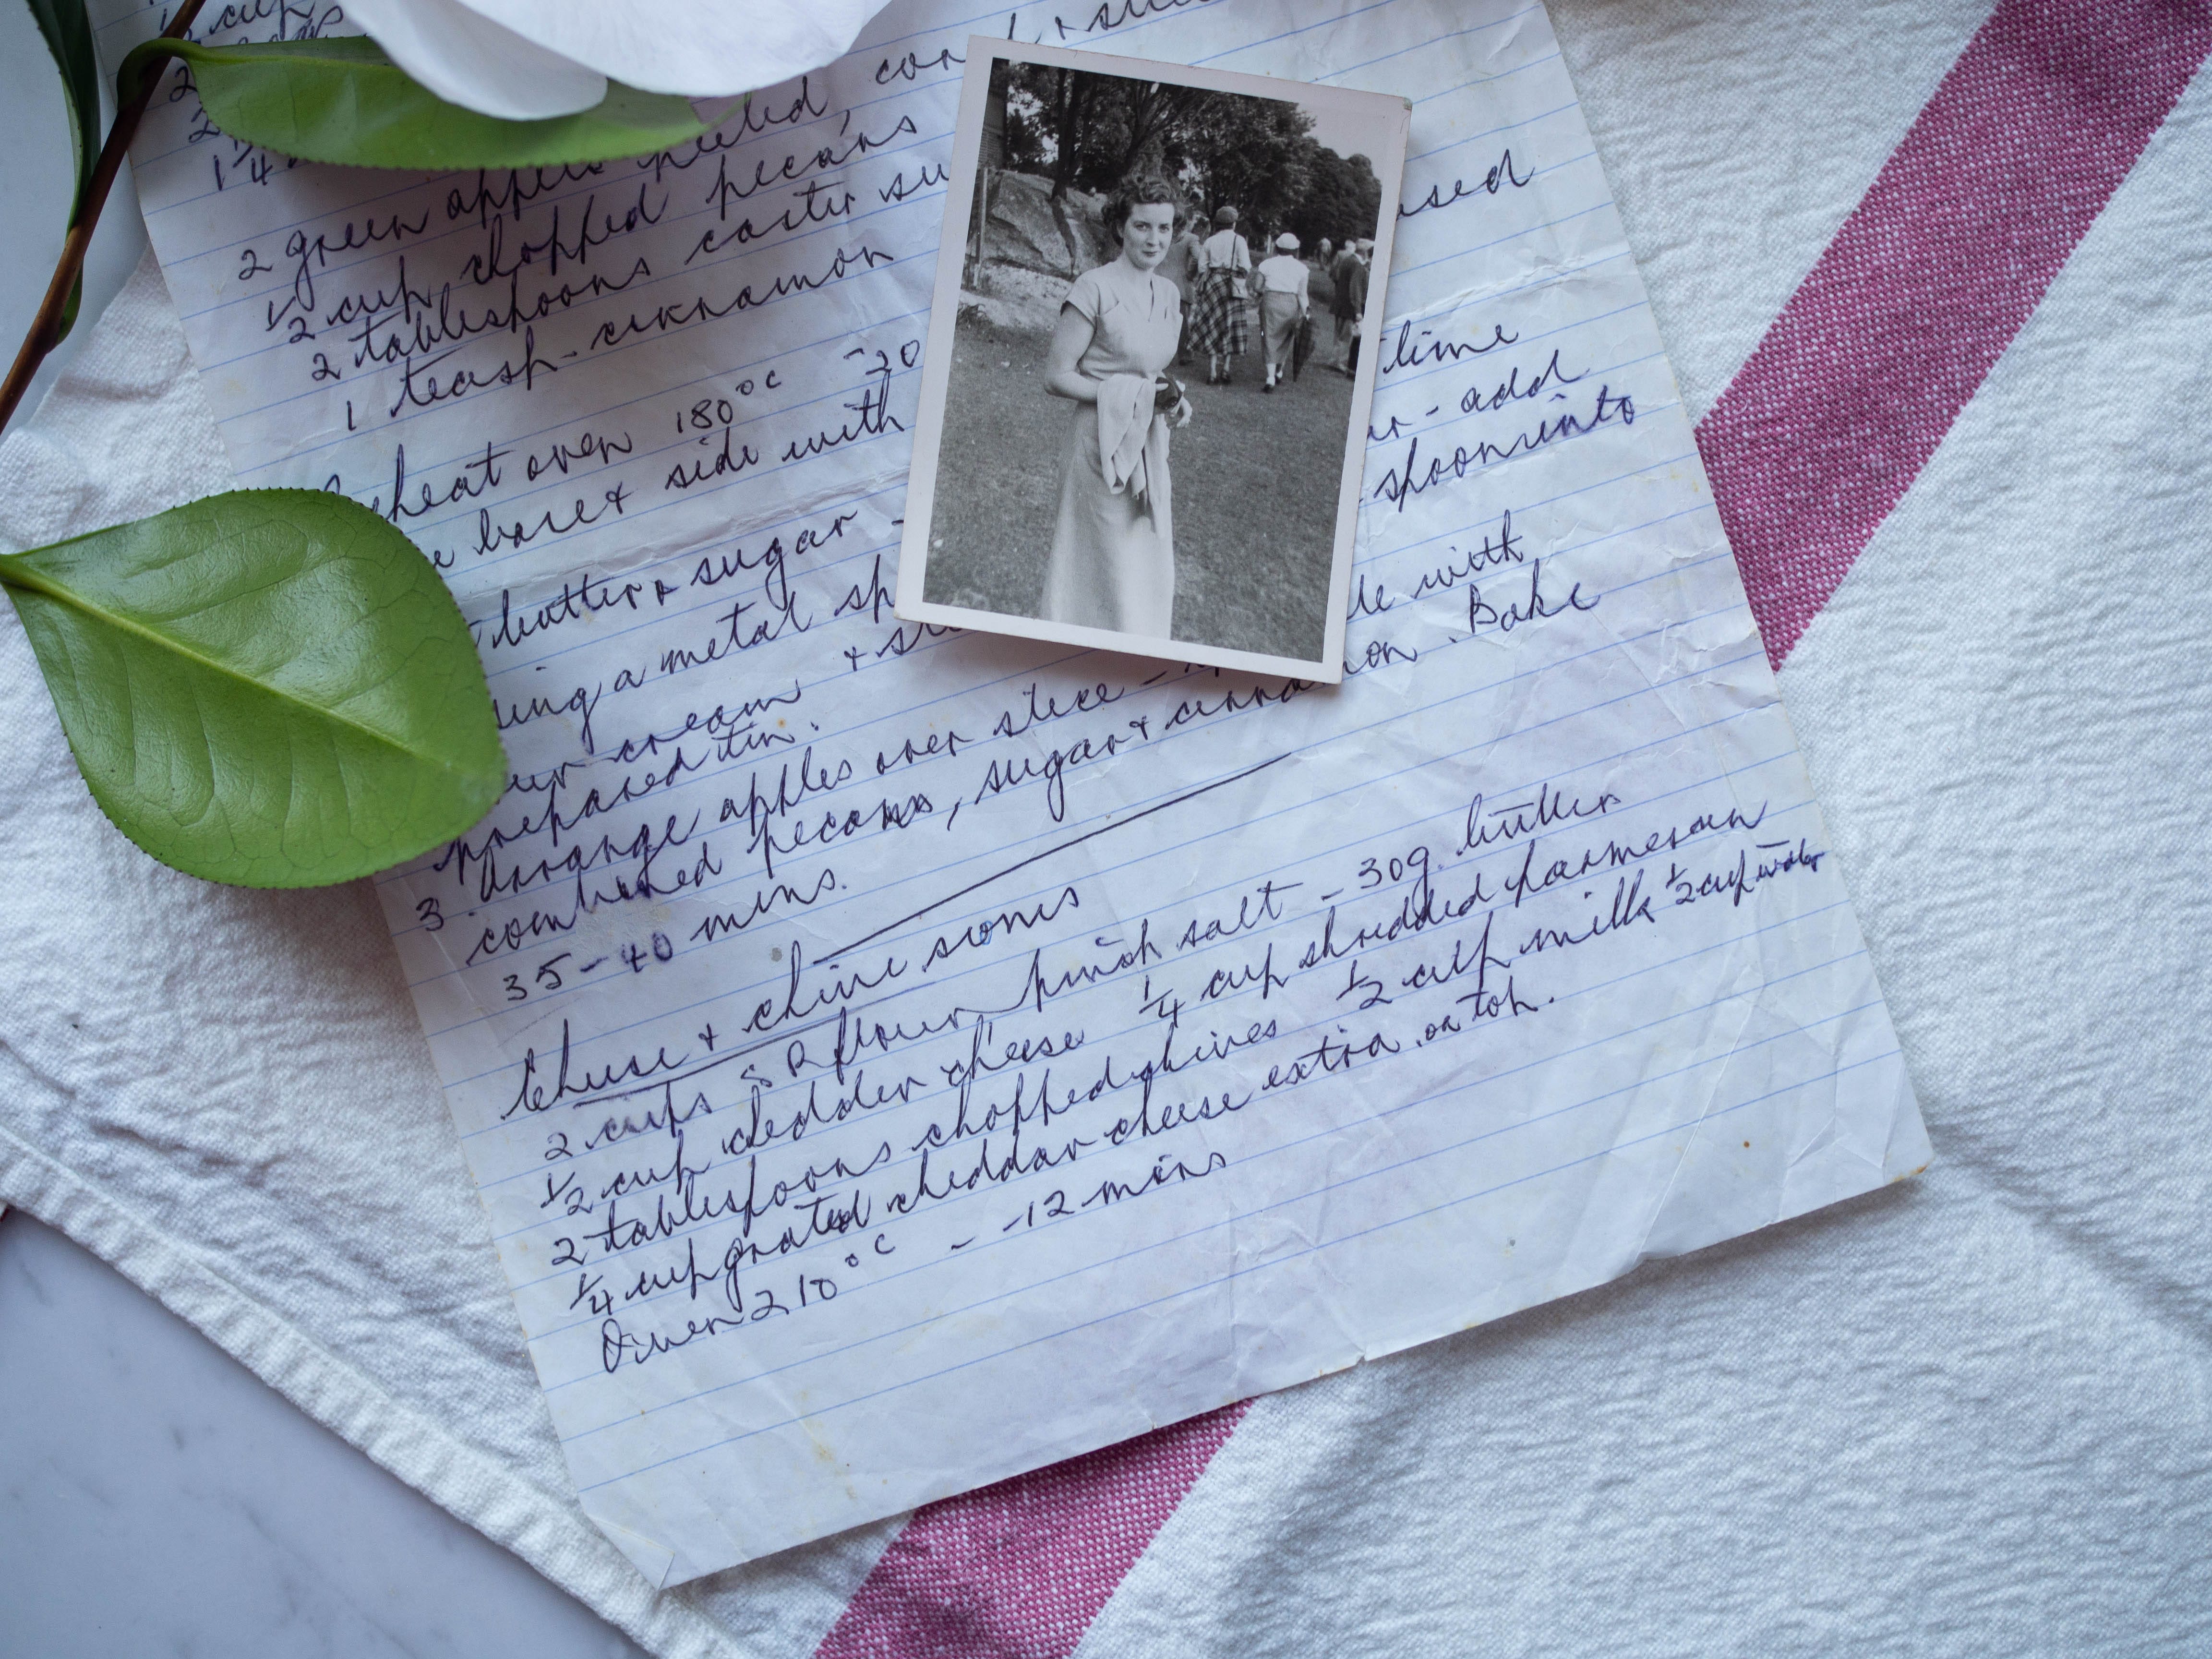 1/2 cup
2
2
1 1/4
2 green apples peeled,
1/2 cup chopped pecans
2 tablespoons caster su
1 teasp. cinnamon
sed
eheat oven 180°C -20
base & side with
time
butter & sugar - r - add
sing a metal sp spoon into
ur cream & s
prepared tin.
3 Arrange apples over slice - le with
combined pecans, sugar & cinnamon. Bake
35-40 mins.
Cheese & chive scones
2 cups S R flour pinch salt - 30g. butter
1/2 cup chedder cheese 1/4 cup shredded parmesan
2 tablespoons chopped chives 1/2 cup milk 1/2 cup water
1/4 cup grated cheddar cheese extra on top.
Oven 210°C - -12 mins